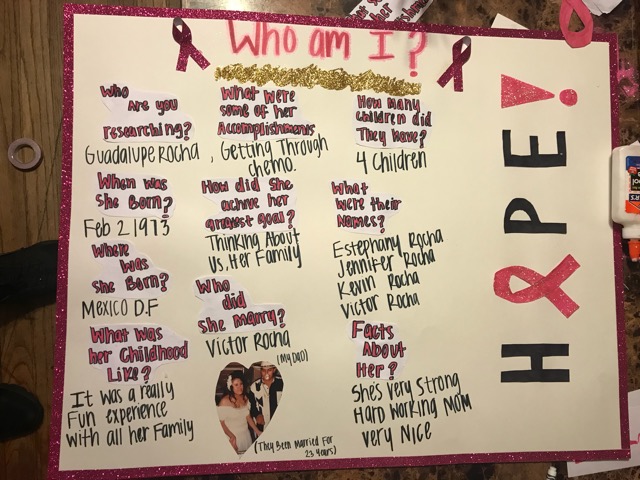 Who am I?
Who
Are you
researching?
Guadalupe Rocha
When was
She Born?
Feb 2 1973
Where
was
She Born?
Mexico D.F
What was
her Childhood
Like?
It was a really
Fun experience
with all her Family
What were
some of her
Accomplishments
, Getting Through
chemo.
How did She
achive her
greatest goal?
Thinking About
Us, Her Family
Who
did
She Marry?
Victor Rocha
(My DAD)
(They Been Married For
23 years)
How Many
Children did
They have?
4 Children
What
were their
Names?
Estephany Rocha
Jennifer Rocha
Kevin Rocha
Victor Rocha
Facts
About
Her?
She's Very Strong
Hard Working Mom
Very Nice
HOPE!